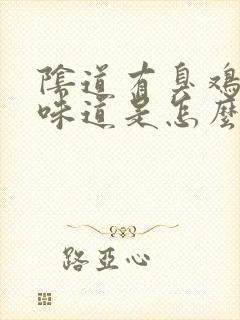 陰道有臭鸡
味道是怎麼
路亞心